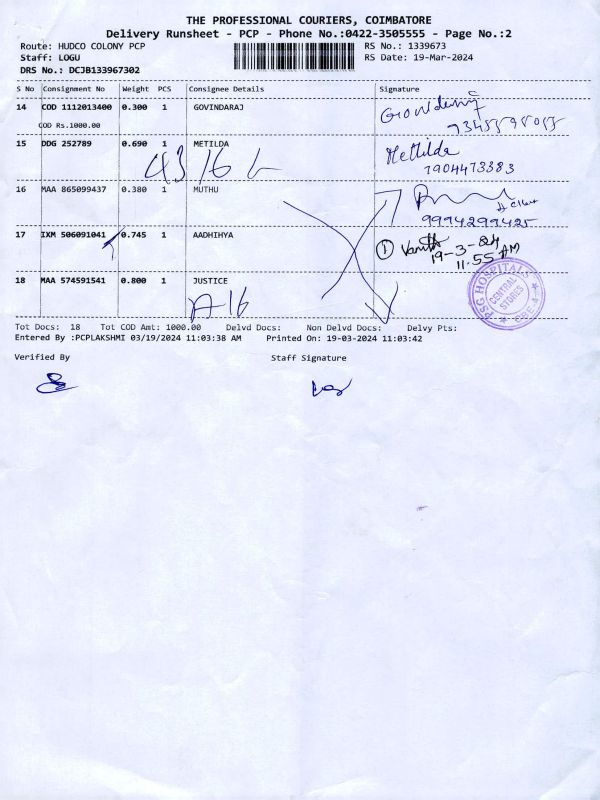 THE PROFESSIONAL COURIERS, COIMBATORE
Delivery Runsheet - PCP - Phone No.:0422-3505555 - Page No.:2
Route: HUDCO COLONY PCP RS No.: 1339673
Staff: LOGU RS Date: 19-Mar-2024
DRS No.: DCJB133967302
S No Consignment No Weight PCS Consignee Details Signature
14 COD 1112013400 0.300 1 GOVINDARAJ
COD Rs.1000.00
15 DDG 252789 0.690 1 METILDA Metilda
7904473383
16 MAA 865099437 0.380 1 MUTHU
9994299425
17 IXM 506091041 0.745 1 AADHIHYA 1 Vanitha 19-3-24
11:55 AM
18 MAA 574591541 0.800 1 JUSTICE
A-16
PSG HOSPITALS
CENTRAL STORES
Tot Docs: 18 Tot COD Amt: 1000.00 Delvd Docs: Non Delvd Docs: Delvy Pts:
Entered By :PCPLAKSHMI 03/19/2024 11:03:38 AM Printed On: 19-03-2024 11:03:42
Verified By Staff Signature